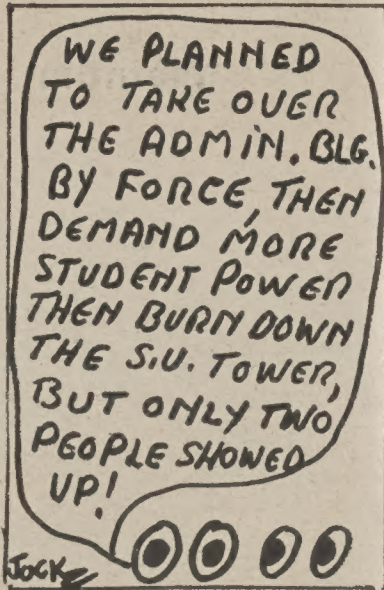 WE PLANNED
TO TAKE OVER
THE ADMIN. BLG.
BY FORCE, THEN
DEMAND MORE
STUDENT POWER
THEN BURN DOWN
THE S.U. TOWER,
BUT ONLY TWO
PEOPLE SHOWED
UP!
JOCK